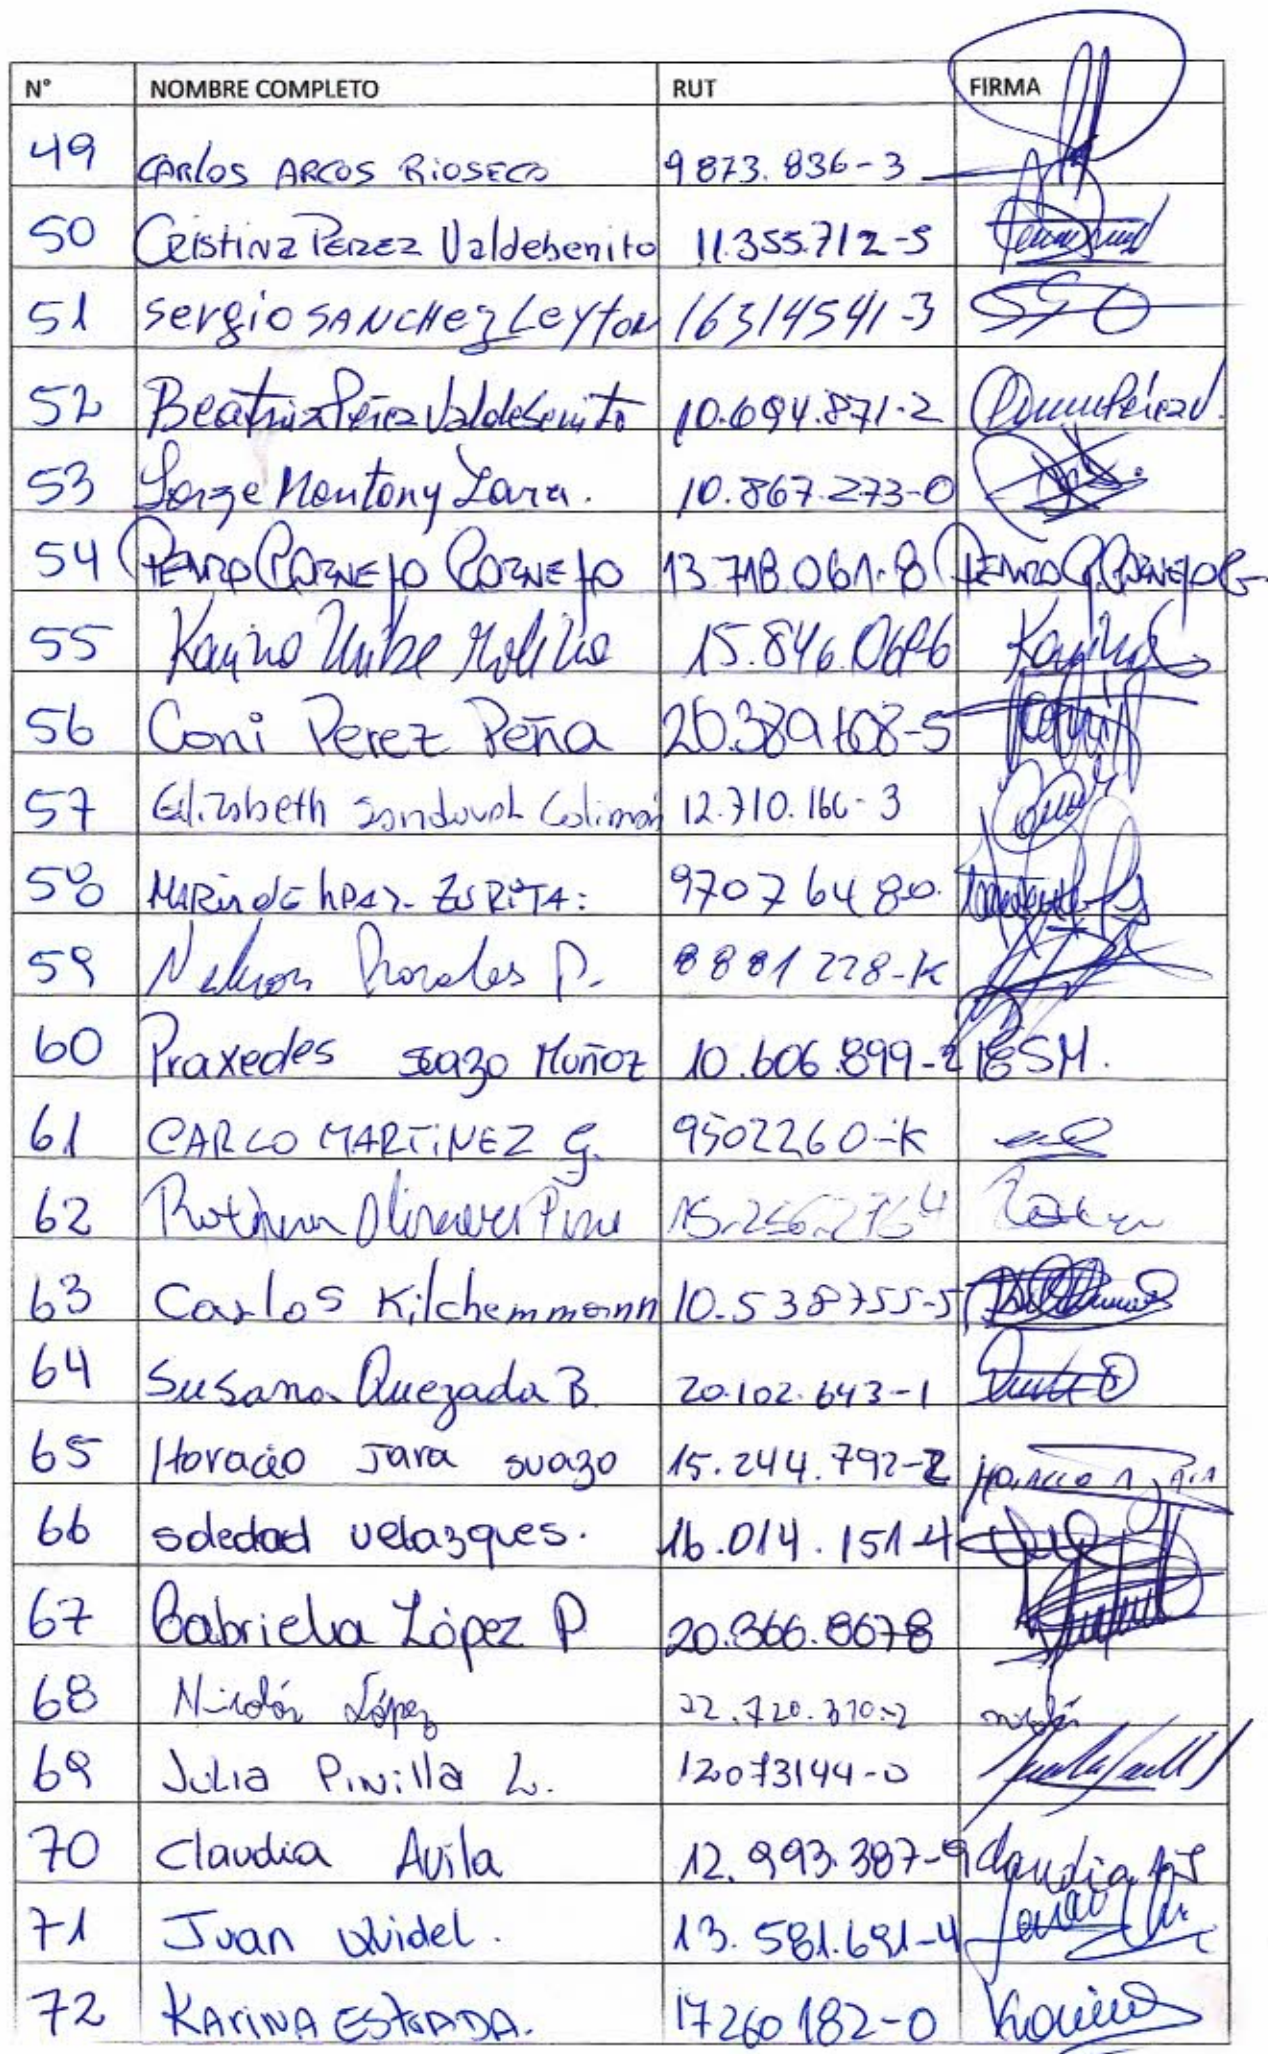 N° NOMBRE COMPLETO RUT FIRMA
49 CARLOS ARCOS RIOSECO 9.873.836-3
50 Cristina Perez Valdebenito 11.355.712-5
51 Sergio SANCHEZ Leyton 16314541-3
52 Beatriz Pérez Valdebenito 10.694.871-2
53 Jorge Montony Lara. 10.867.273-0
54 PEDRO CORNEJO CORNEJO 13.718.061-8 PEDRO CORNEJO C
55 Karina Uribe Molina 15.846.
56 Coni Perez Peña
57 Elizabeth Sandoval 12.710.166-3
58 MARIA DE LA PAZ ZURITA: 9707648-0
59 Nelson Morales P. 8881228-K
60 Praxedes Suazo Muñoz 10.606.899-2 PSM.
61 CARLO MARTINEZ G. 9502260-K
62 15.256.276 4
63 Carlos Kilchemmann 10.538755-5
64 Susana Quezada B. 20.102.643-1
65 Horacio Jara suazo 15.244.792-2 Horacio Jara
66 soledad velazques. 16.014.151-4
67 Gabriela López P 20.366.8678
68 Nicolás López 22.720.370-2 nicolás
69 Julia Pinilla L. 12073144-0
70 Claudia Avila 12.993.387-9 Claudia
71 Juan Quidel. 13.581.691-4
72 KARINA ESTRADA. 17260182-0 Karina